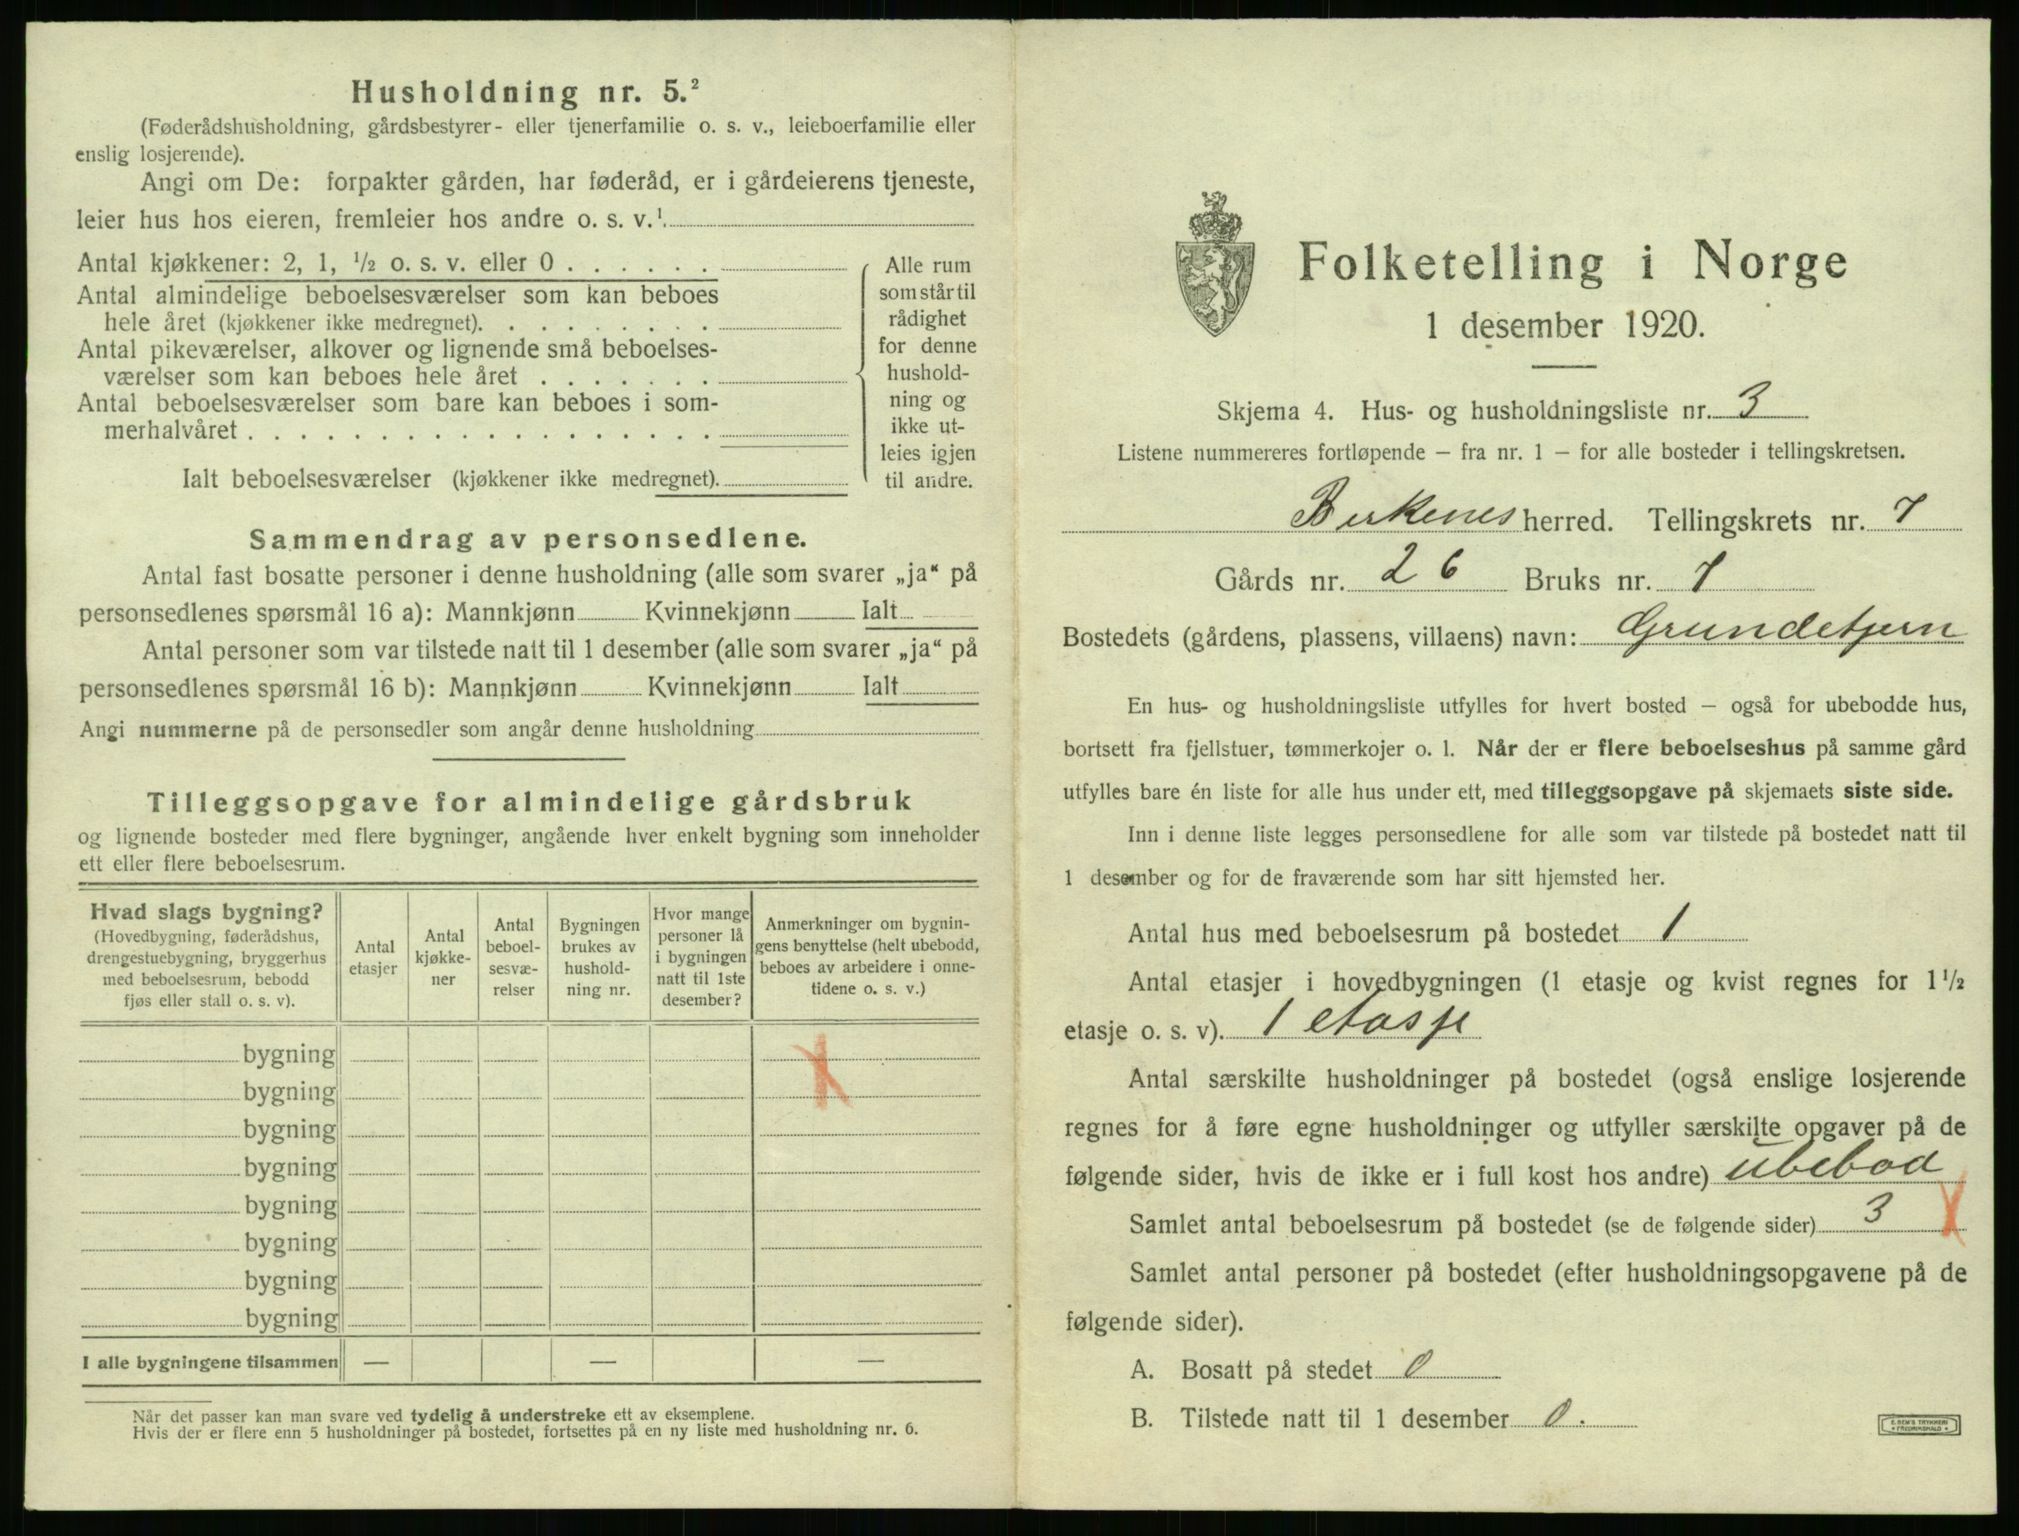 Husholdning nr. 5.²
(Føderådshusholdning, gårdsbestyrer- eller tjenerfamilie o. s. v., leieboerfamilie eller
enslig losjerende).
Angi om De: forpakter gården, har føderåd, er i gårdeierens tjeneste,
leier hus hos eieren, fremleier hos andre o. s. v.¹
Antal kjøkkener: 2, 1, ½ o. s. v. eller 0 . . . . . .
Antal almindelige beboelsesværelser som kan beboes
hele året (kjøkkener ikke medregnet). . . . . . . . .
Antal pikeværelser, alkover og lignende små beboelses-
værelser som kan beboes hele året . . . . . . .
Antal beboelsesværelser som bare kan beboes i som-
merhalvåret . . . . . . . . . . . . . . . . . .
Ialt beboelsesværelser (kjøkkener ikke medregnet).
Alle rum
som står til
rådighet
for denne
hushold-
ning og
ikke ut-
leies igjen
til andre.
Sammendrag av personsedlene.
Antal fast bosatte personer i denne husholdning (alle som svarer „ja“ på
personsedlenes spørsmål 16 a): Mannkjønn Kvinnekjønn Ialt
Antal personer som var tilstede natt til 1 desember (alle som svarer „ja“ på
personsedlenes spørsmål 16 b): Mannkjønn Kvinnekjønn Ialt
Angi nummerne på de personsedler som angår denne husholdning
Tilleggsopgave for almindelige gårdsbruk
og lignende bosteder med flere bygninger, angående hver enkelt bygning som inneholder
ett eller flere beboelsesrum.
Hvad slags bygning?
(Hovedbygning, føderådshus,
drengestuebygning, bryggerhus
med beboelsesrum, bebodd
fjøs eller stall o. s. v).
Antal
etasjer
Antal
kjøkke-
ner
Antal
beboel-
sesvæ-
relser
Bygningen
brukes av
hushold-
ning nr.
Hvor mange
personer lå
i bygningen
natt til 1ste
desember?
Anmerkninger om bygnin-
gens benyttelse (helt ubebodd,
beboes av arbeidere i onne-
tidene o. s. v.)
bygning
bygning
bygning
bygning
bygning
bygning
bygning
bygning
I alle bygningene tilsammen — — —
Når det passer kan man svare ved tydelig å understreke ett av eksemplene.
Hvis der er flere enn 5 husholdninger på bostedet, fortsettes på en ny liste med husholdning nr. 6.
Folketelling i Norge
1 desember 1920.
Skjema 4. Hus- og husholdningsliste nr. 3
Listene nummereres fortløpende – fra nr. 1 – for alle bosteder i tellingskretsen.
Birkenes herred. Tellingskrets nr. 7
Gårds nr. 26 Bruks nr. 7
Bostedets (gårdens, plassens, villaens) navn: Grundetjern
En hus- og husholdningsliste utfylles for hvert bosted – også for ubebodde hus,
bortsett fra fjellstuer, tømmerkojer o. l. Når der er flere beboelseshus på samme gård
utfylles bare én liste for alle hus under ett, med tilleggsopgave på skjemaets siste side.
Inn i denne liste legges personsedlene for alle som var tilstede på bostedet natt til
1 desember og for de fraværende som har sitt hjemsted her.
Antal hus med beboelsesrum på bostedet 1
Antal etasjer i hovedbygningen (1 etasje og kvist regnes for 1½
etasje o. s. v). 1 etasje
Antal særskilte husholdninger på bostedet (også enslige losjerende
regnes for å føre egne husholdninger og utfyller særskilte opgaver på de
følgende sider, hvis de ikke er i full kost hos andre) ubebod
Samlet antal beboelsesrum på bostedet (se de følgende sider) 3 X
Samlet antal personer på bostedet (efter husholdningsopgavene på de
følgende sider).
A. Bosatt på stedet 0
B. Tilstede natt til 1 desember 0.
E. SEM'S TRYKKERI
FREDRIKSHALD